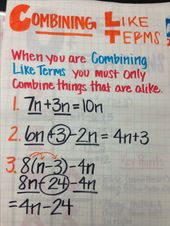 COMBINING LIKE TERMS
When you are Combining
Like Terms you must only
Combine things that are alike.
1. 7n+3n=10n
2. 6n(+3)-2n=4n+3
3. 8(n-3)-4n
8n(-24)-4n
=4n-24